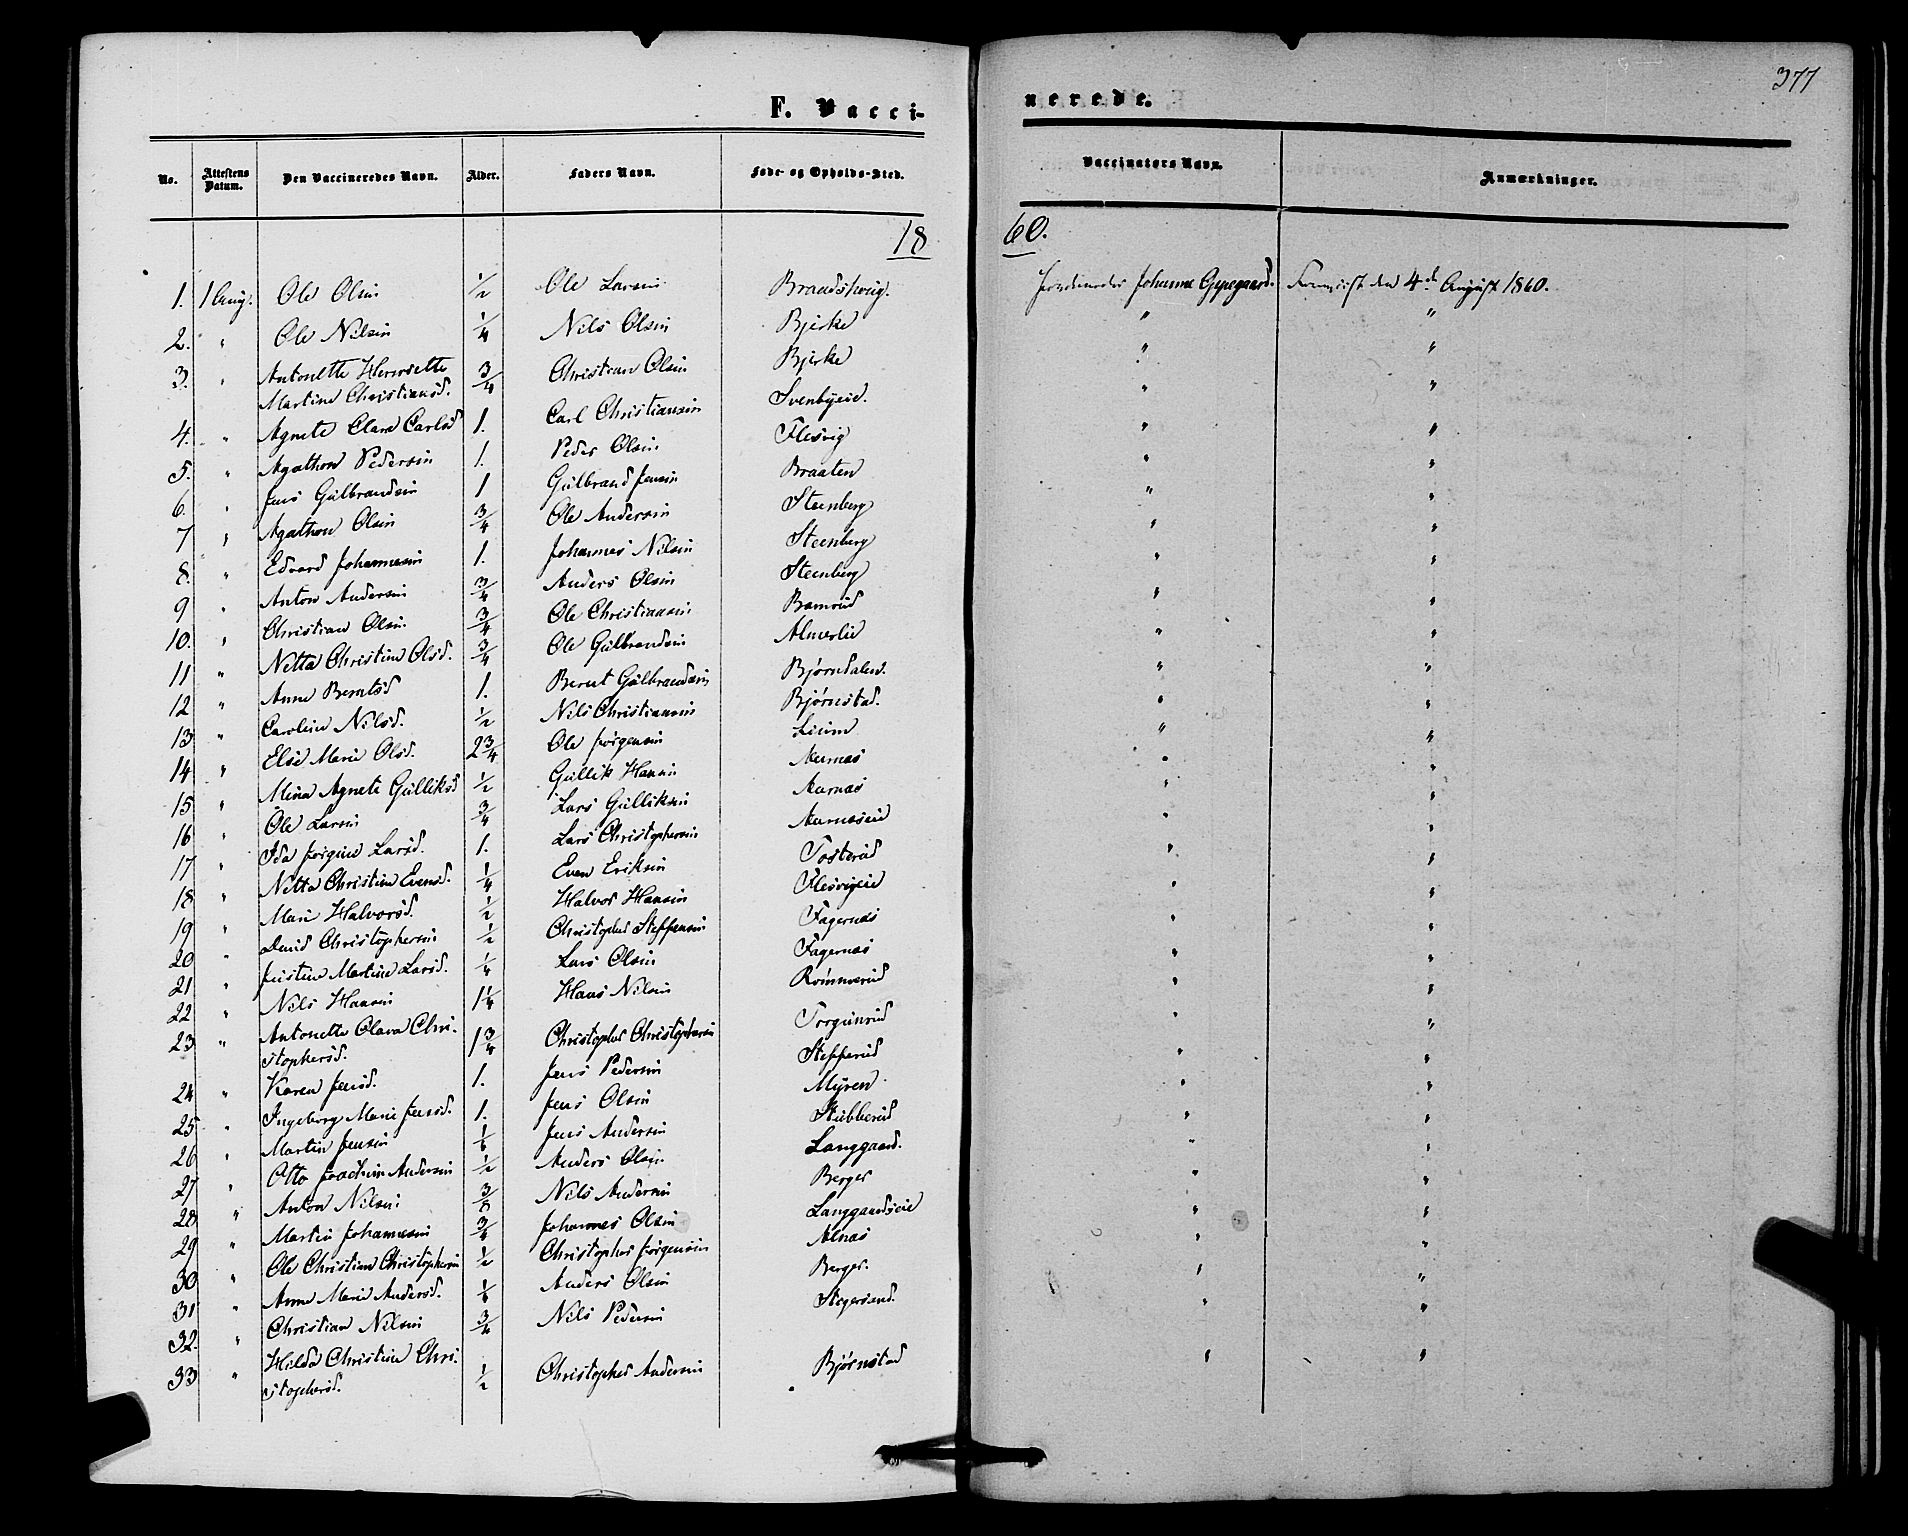 377
F. Vacci-
nerede.
No. Attestens Datum. Den Vaccineredes Navn. Alder. Faders Navn. Føde- og Opholds-Sted. Vaccinators Navn. Anmærkninger.
18 60.
1. 1 Aug. Ole Olsen 1/2 Ole Larsen Johanne 4de August 1860.
2. " Ole Nilsen 1/4 Nils Olsen Bjerke " "
3. " Antonette Henriette 3/4 Christian Olsen Bjerke " "
Martine Christiansd.
4. " Agnete Clara Carlsd 1. Carl Christiansen Svenbyeie. " "
5. " Agathon Pedersen 1. Peder Olsen Flesvig " "
6. " Jens Gulbrandsen 1 Gulbrand Jensen Braaten " "
7 " Agathon Olsen 3/4 Ole Andersen Steenberg " "
8. " Edvard Johannesen 1. Johannes Nilsen Steenberg " "
9 " Anton Andersen 3/4 Anders Olsen Steenberg " "
10. " Christian Olsen 3/4 Ole Christiansen Bamrud " "
11 " Netta Christine Olsd. 3/4 Ole Gulbrandsen Almerlie " "
12 " Anne Berntsd 1. Bernt Gulbrandsen Bjørndalen. " "
13 " Caroline Nilsd. 1/2 Nils Christiansen Bjørnstad. " "
14 " Else Marie Olsd. 2 3/4 Ole Jørgensen " "
15 " Mina Agnete Gulliksd 1/2 Gullik Hansen Aurnæs " "
16 " Ole Larsen 3/4 Lars Gulliksen Aurnæs " "
17 " Ida Jørgine Larsd. 1. Lars Christophersen Aurnæseie " "
18 " Netta Christine Evensd. 1/4 Even Eriksen Tosterud " "
19 " Mari Halvorsd. 1/2 Halvor Hansen Flesvigeie " "
20 " David Christophersen 1/2 Christopher Steffensen Fagernæs " "
21 " Justine Martine Larsd. 1/4 Lars Olsen Fagernæs " "
22 " Nils Hansen 1 1/4 Hans Nilsen Rømmerud " "
23 " Antonette Olava Chri- 1 3/4 Christopher Christophersen Torgunrud " "
stophersd.
24 " Karen Jensd. 1. Jens Pedersen Stefferud " "
25 " Ingeborg Marie Jensd. 1. Jens Olsen Myren " "
26 " Martin Jensen 1/6 Jens Andersen Stubberud " "
27 " Otto Joachim Andersen 1/2 Anders Olsen Langgaard. " "
28 " Anton Nilsen 3/8 Nils Andersen Berger " "
29 " Martin Johannesen 3/4 Johannes Olsen Langgaardseie " "
30 " Ole Christian Christophersen 1/2 Christopher Jørgensen Alnæs " "
31 " Anne Marie Andersd. 1/6 Anders Olsen Berger. " "
32. " Christian Nilsen 3/4 Nils Pedersen " "
33 " Hilda Christine Chri- 1/2 Christopher Andersen Bjørnstad " "
stophersd.